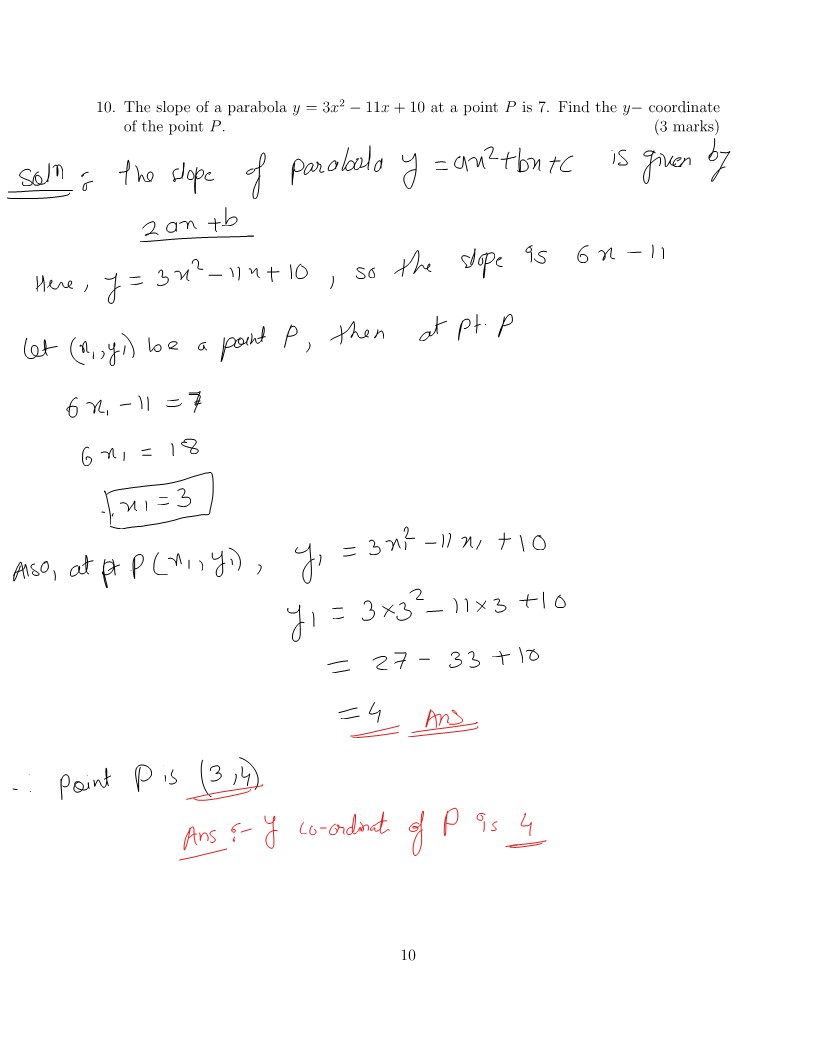 10. The slope of a parabola y = 3x² − 11x + 10 at a point P is 7. Find the y− coordinate
of the point P. (3 marks)
Soln :- the slope of parabola y = ax²+bx+c is given by
2ax+b
Here, y = 3x²-11x+10, so the slope is 6x-11
Let (x₁,y₁) be a point P, then at pt. P
6x₁-11=7
6x₁ = 18
∴ x₁=3
Also, at pt P(x₁,y₁), y₁ = 3x₁²-11x₁+10
y₁ = 3×3²-11×3+10
= 27-33+10
=4 Ans
∴ Point P is (3,4)
Ans :- y co-ordinat of P is 4
10